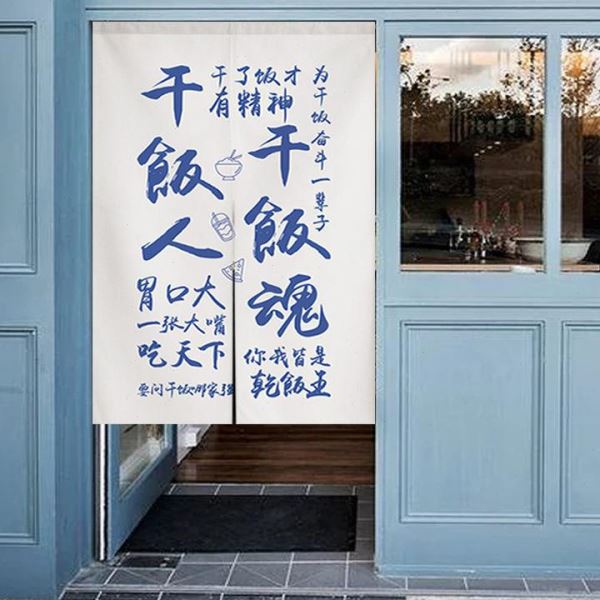 干飯人
干了饭才
有精神
干飯魂
为干饭奋斗一辈子
胃口大
一张大嘴
吃天下
要问干饭哪家强
你我皆是
乾飯王